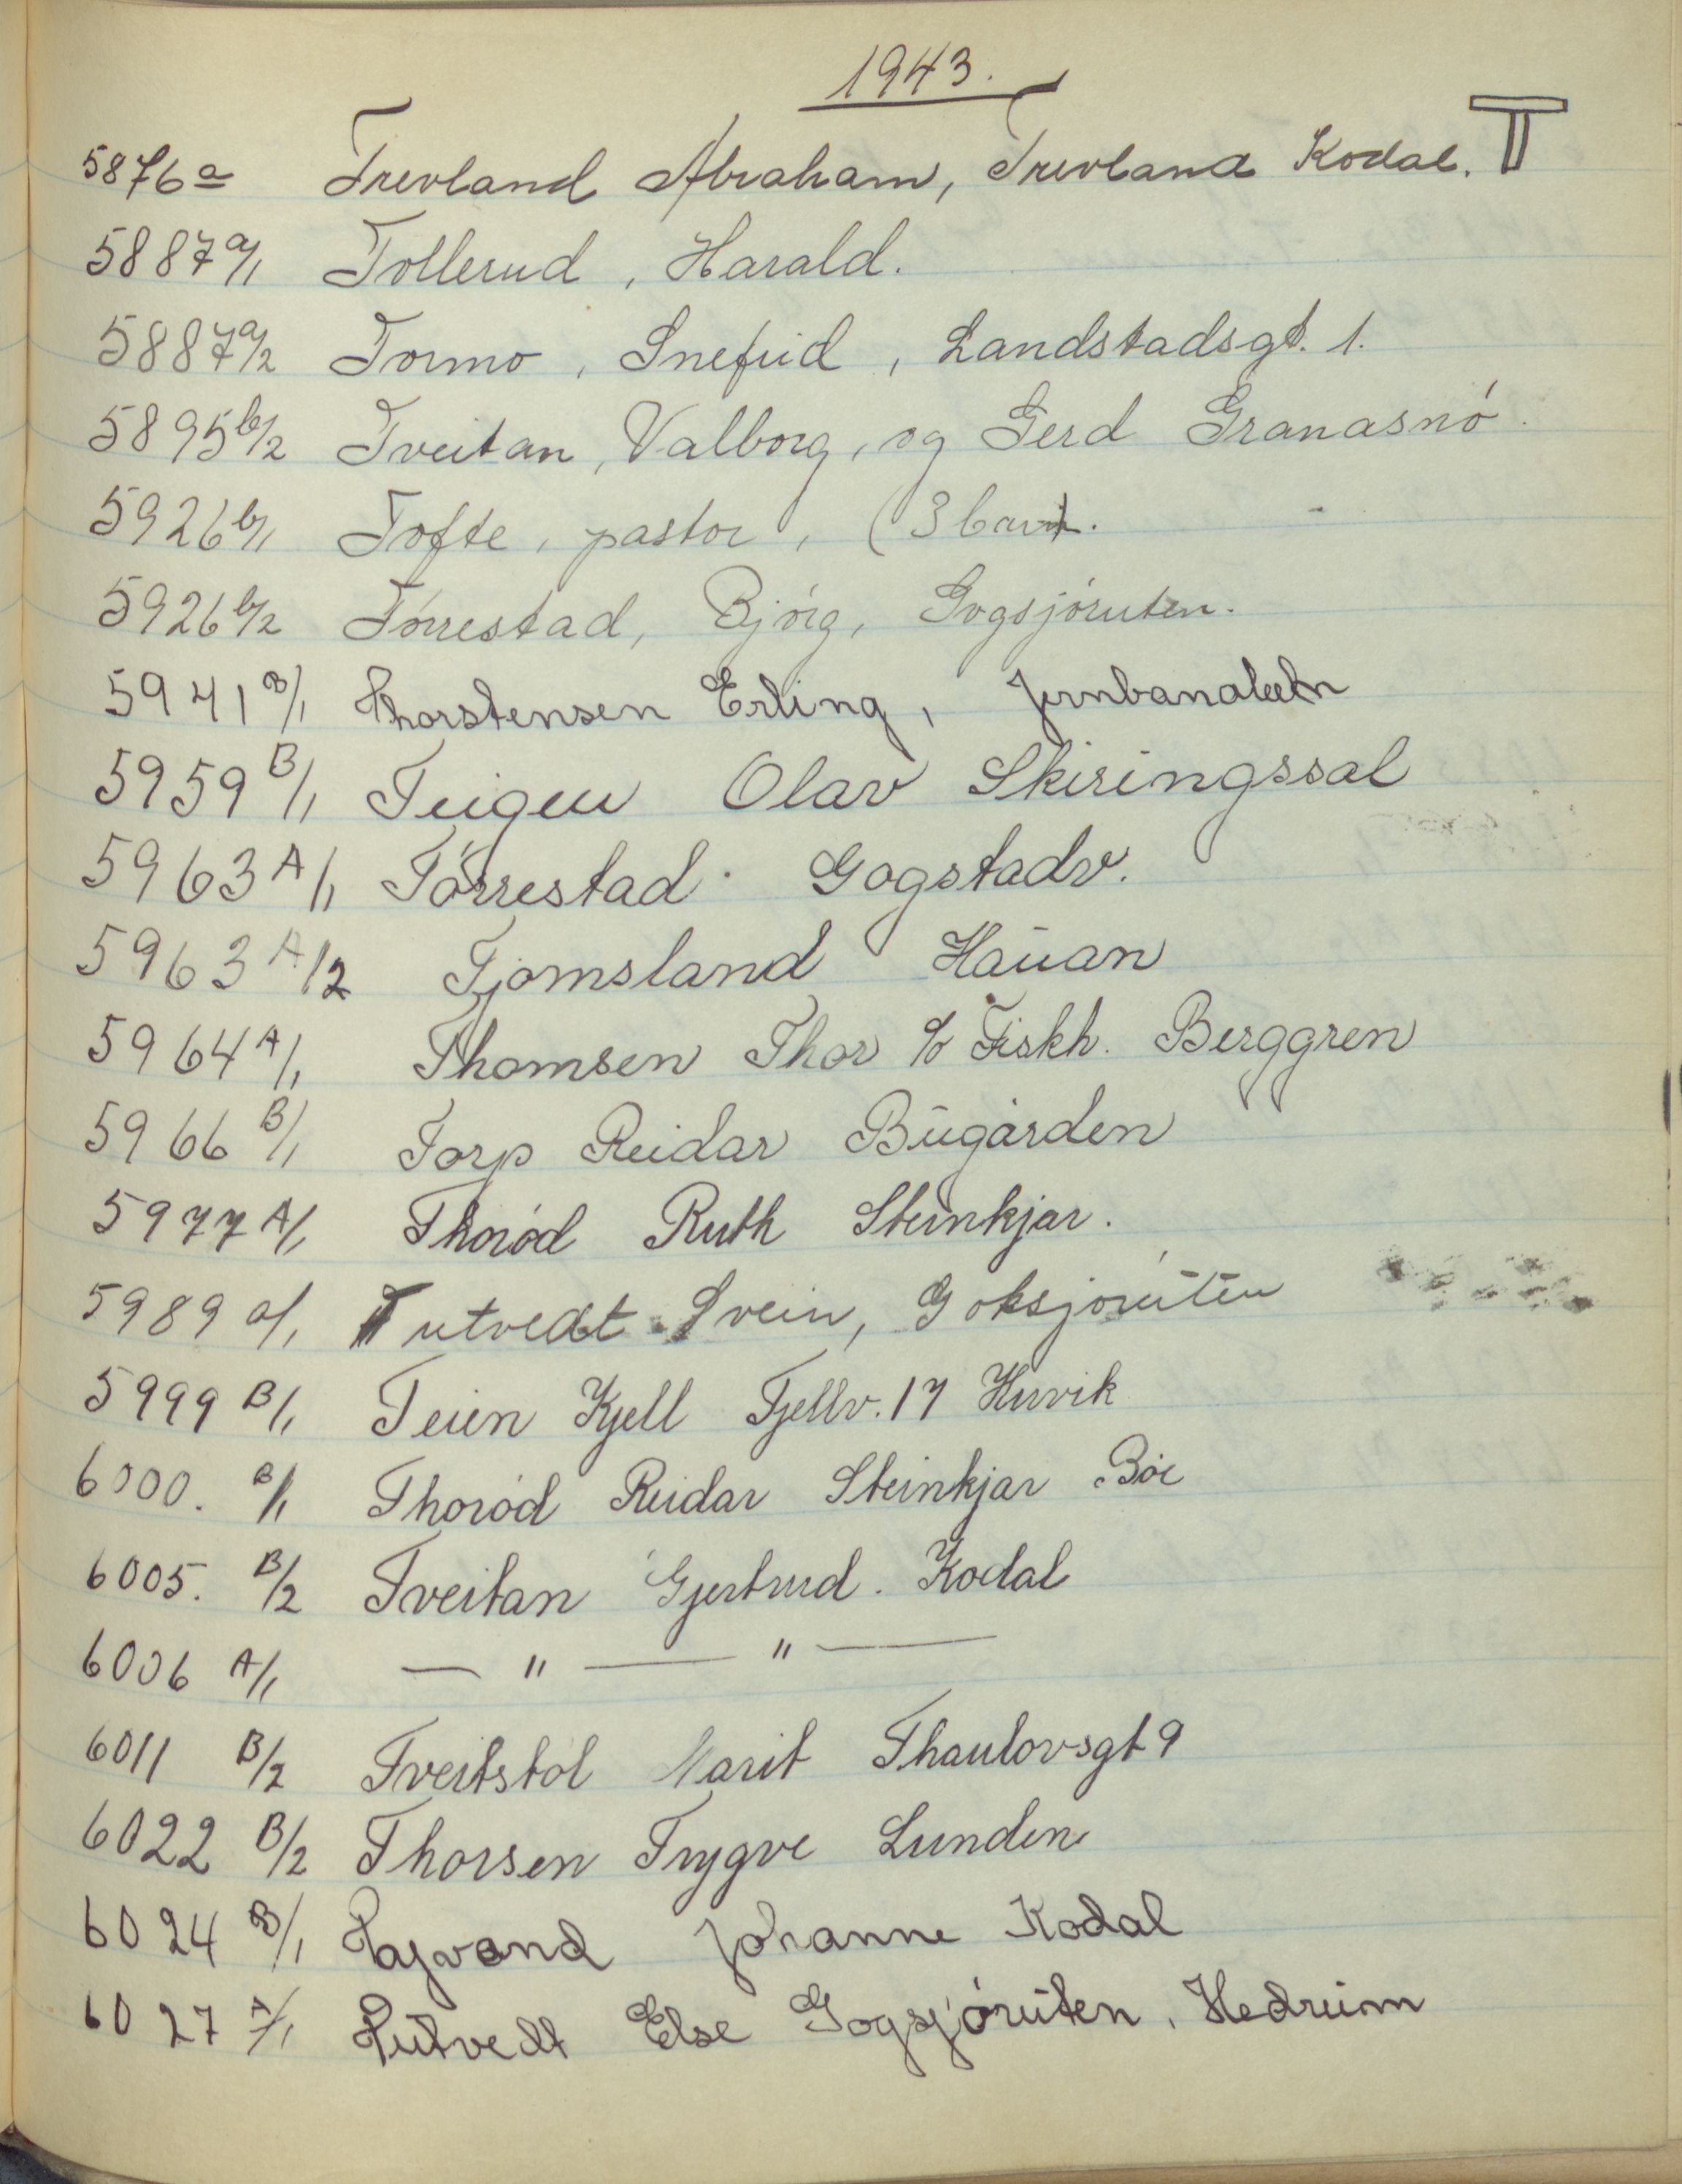 1943.
T
5876a Trevland Abraham, Trevland Kodal.
5887a/1 Tollerud, Harald.
5887a/2 Tormo, Snefrid, Landstadsgt. 1.
5895b/2 Tveitan, Valborg, og Gerd Granasnó.
5926b/1 Tofte, pastor, (3 barn.
5926b/2 Tórrestad, Bjórg, Gogsjóruten.
5941B/1 Thorstensen Erling,
5959B/1 Teigen Olav Skiringssal
5963A/1 Törrestad. Gogstadv.
5963A/2 Tjomsland Haūan
5964A/1 Thomsen Thor c/o Fiskh. Berggren
5966B/1 Torp Reidar Būgården
5977A/1 Thoród Ruth Steinkjar.
5989a/1 Tutvedt Svein, Goksjorūten
5999B/1 Teien Kjell Fjellv. 17 Huvik
6000. B/1 Thoród Reidar Steinkjar Bóe
6005. B/2 Tveitan Gjertrud. Kodal
6006 A/1 — " — " —
6011 B/2 Tveitstol Marit Thaulovsgt 9
6022 B/2 Thorsen Trygve Lunden
6024 B/1 Johanne Kodal
6027 A/1 Tūtvedt Else Gogsjórūten, Hedrūm